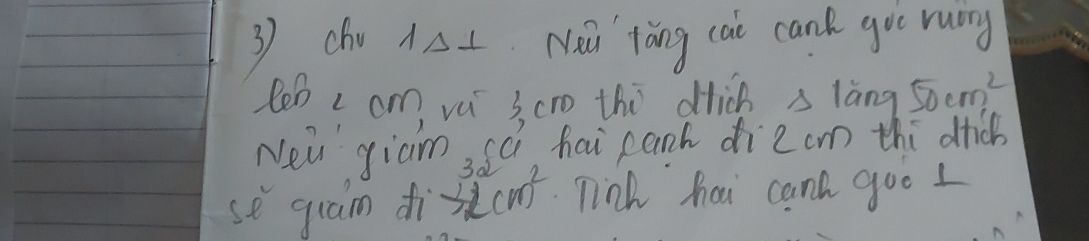 3) cho 1 Δ ⊥. Nếu tăng các cạnh góc vuông
lên 2 cm và 3 cm thì dtích Δ tăng 50 cm²
Nếu giảm cả hai cạnh đi 2 cm thì dtích
sẽ giảm đi 32 cm². Tính hai cạnh góc ⊥